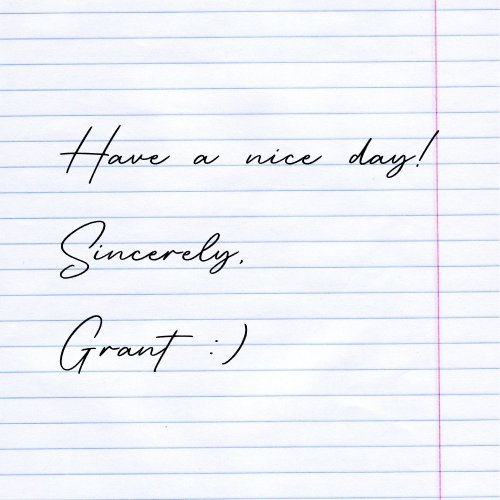 Have a nice day!
Sincerely,
Grant :)